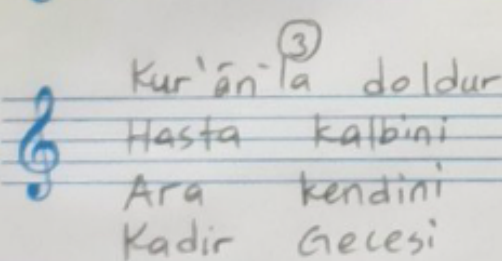 ③
Kur'ân-la doldur
Hasta kalbini
Ara kendini
Kadir Gecesi